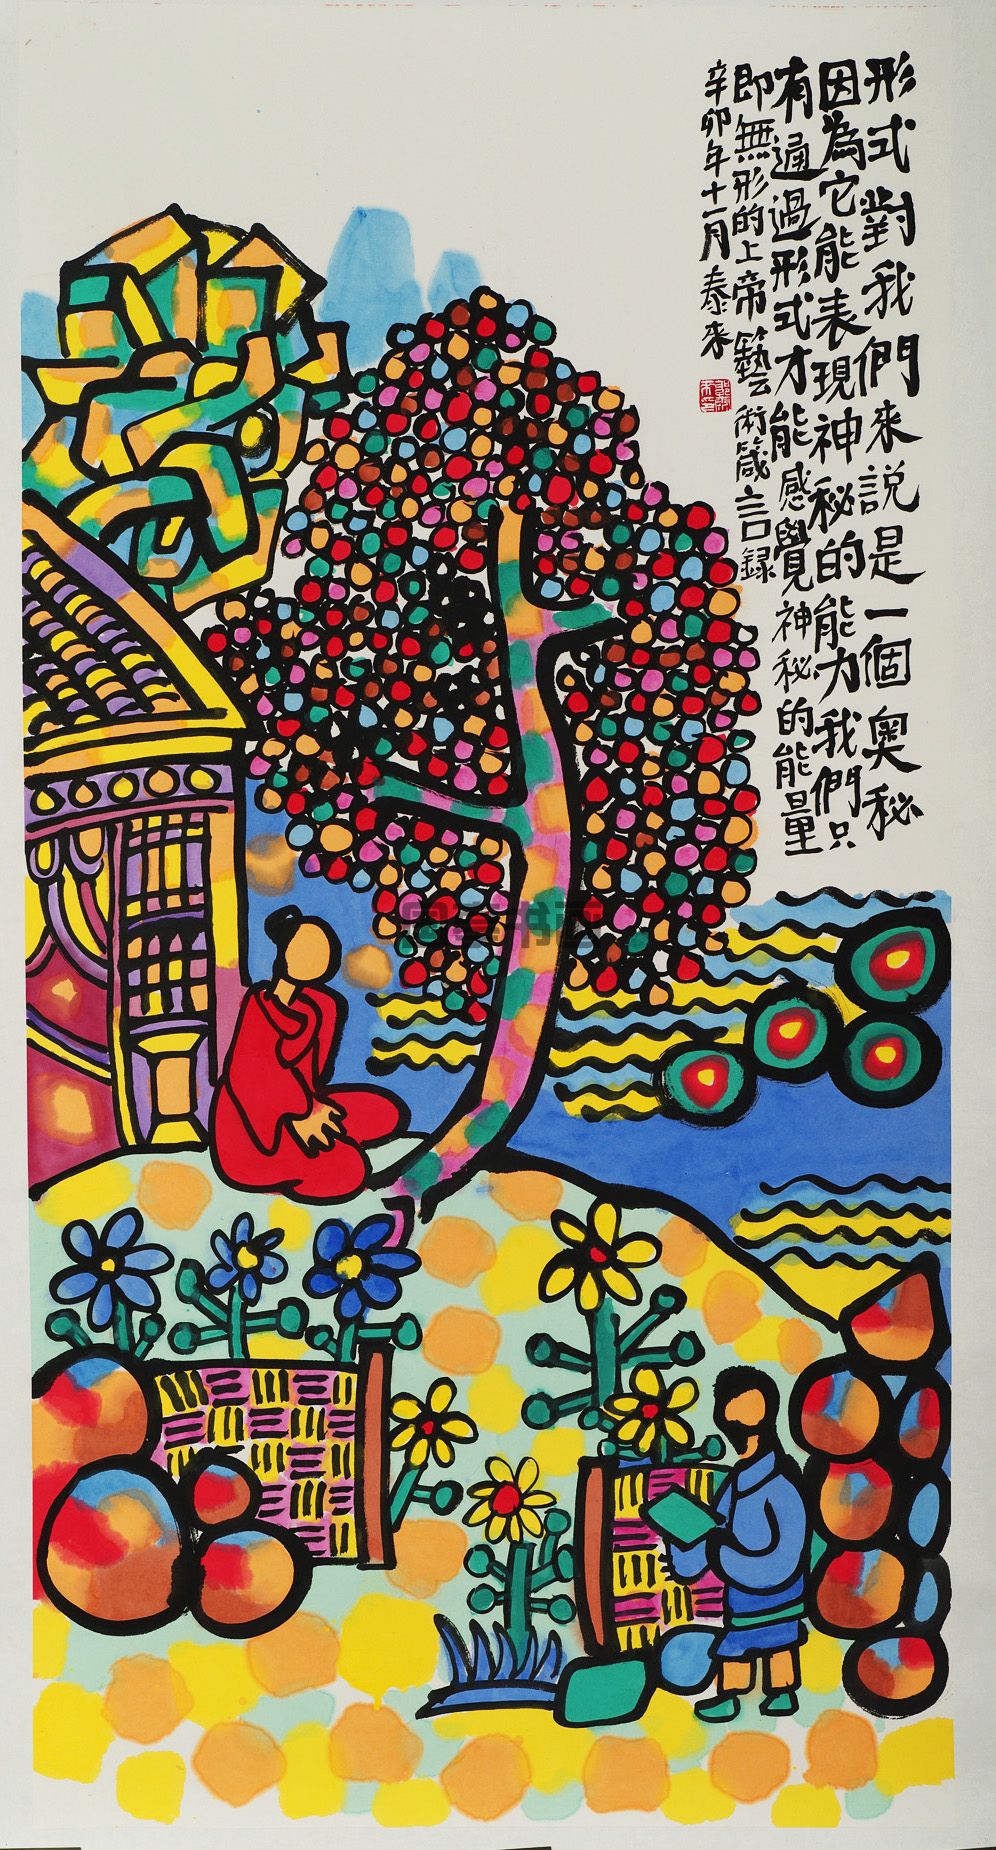 形式對我們來說是一個奧秘
因為它能表現神秘的能力我們只
有通過形式才能感覺神秘的能量
即無形的上帝藝術箴言録
辛卯年十一月泰來